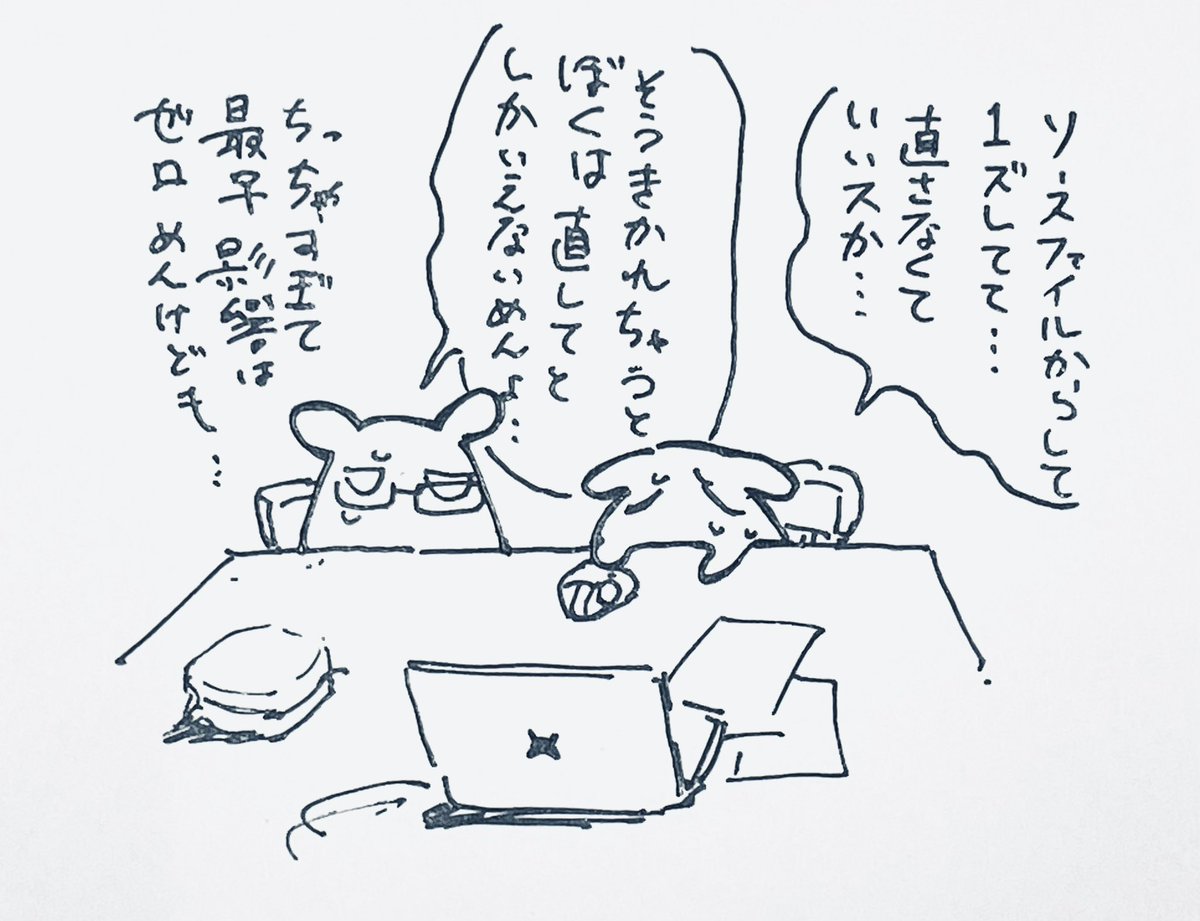 ソースファイルからして
1ズレてて…
直さなくて
いいスか…
そうきかれちゃうと
ぼくは直してと
しかいえないめんよ…
ちっちゃすぎて
最早影響は
ゼロめんけども…